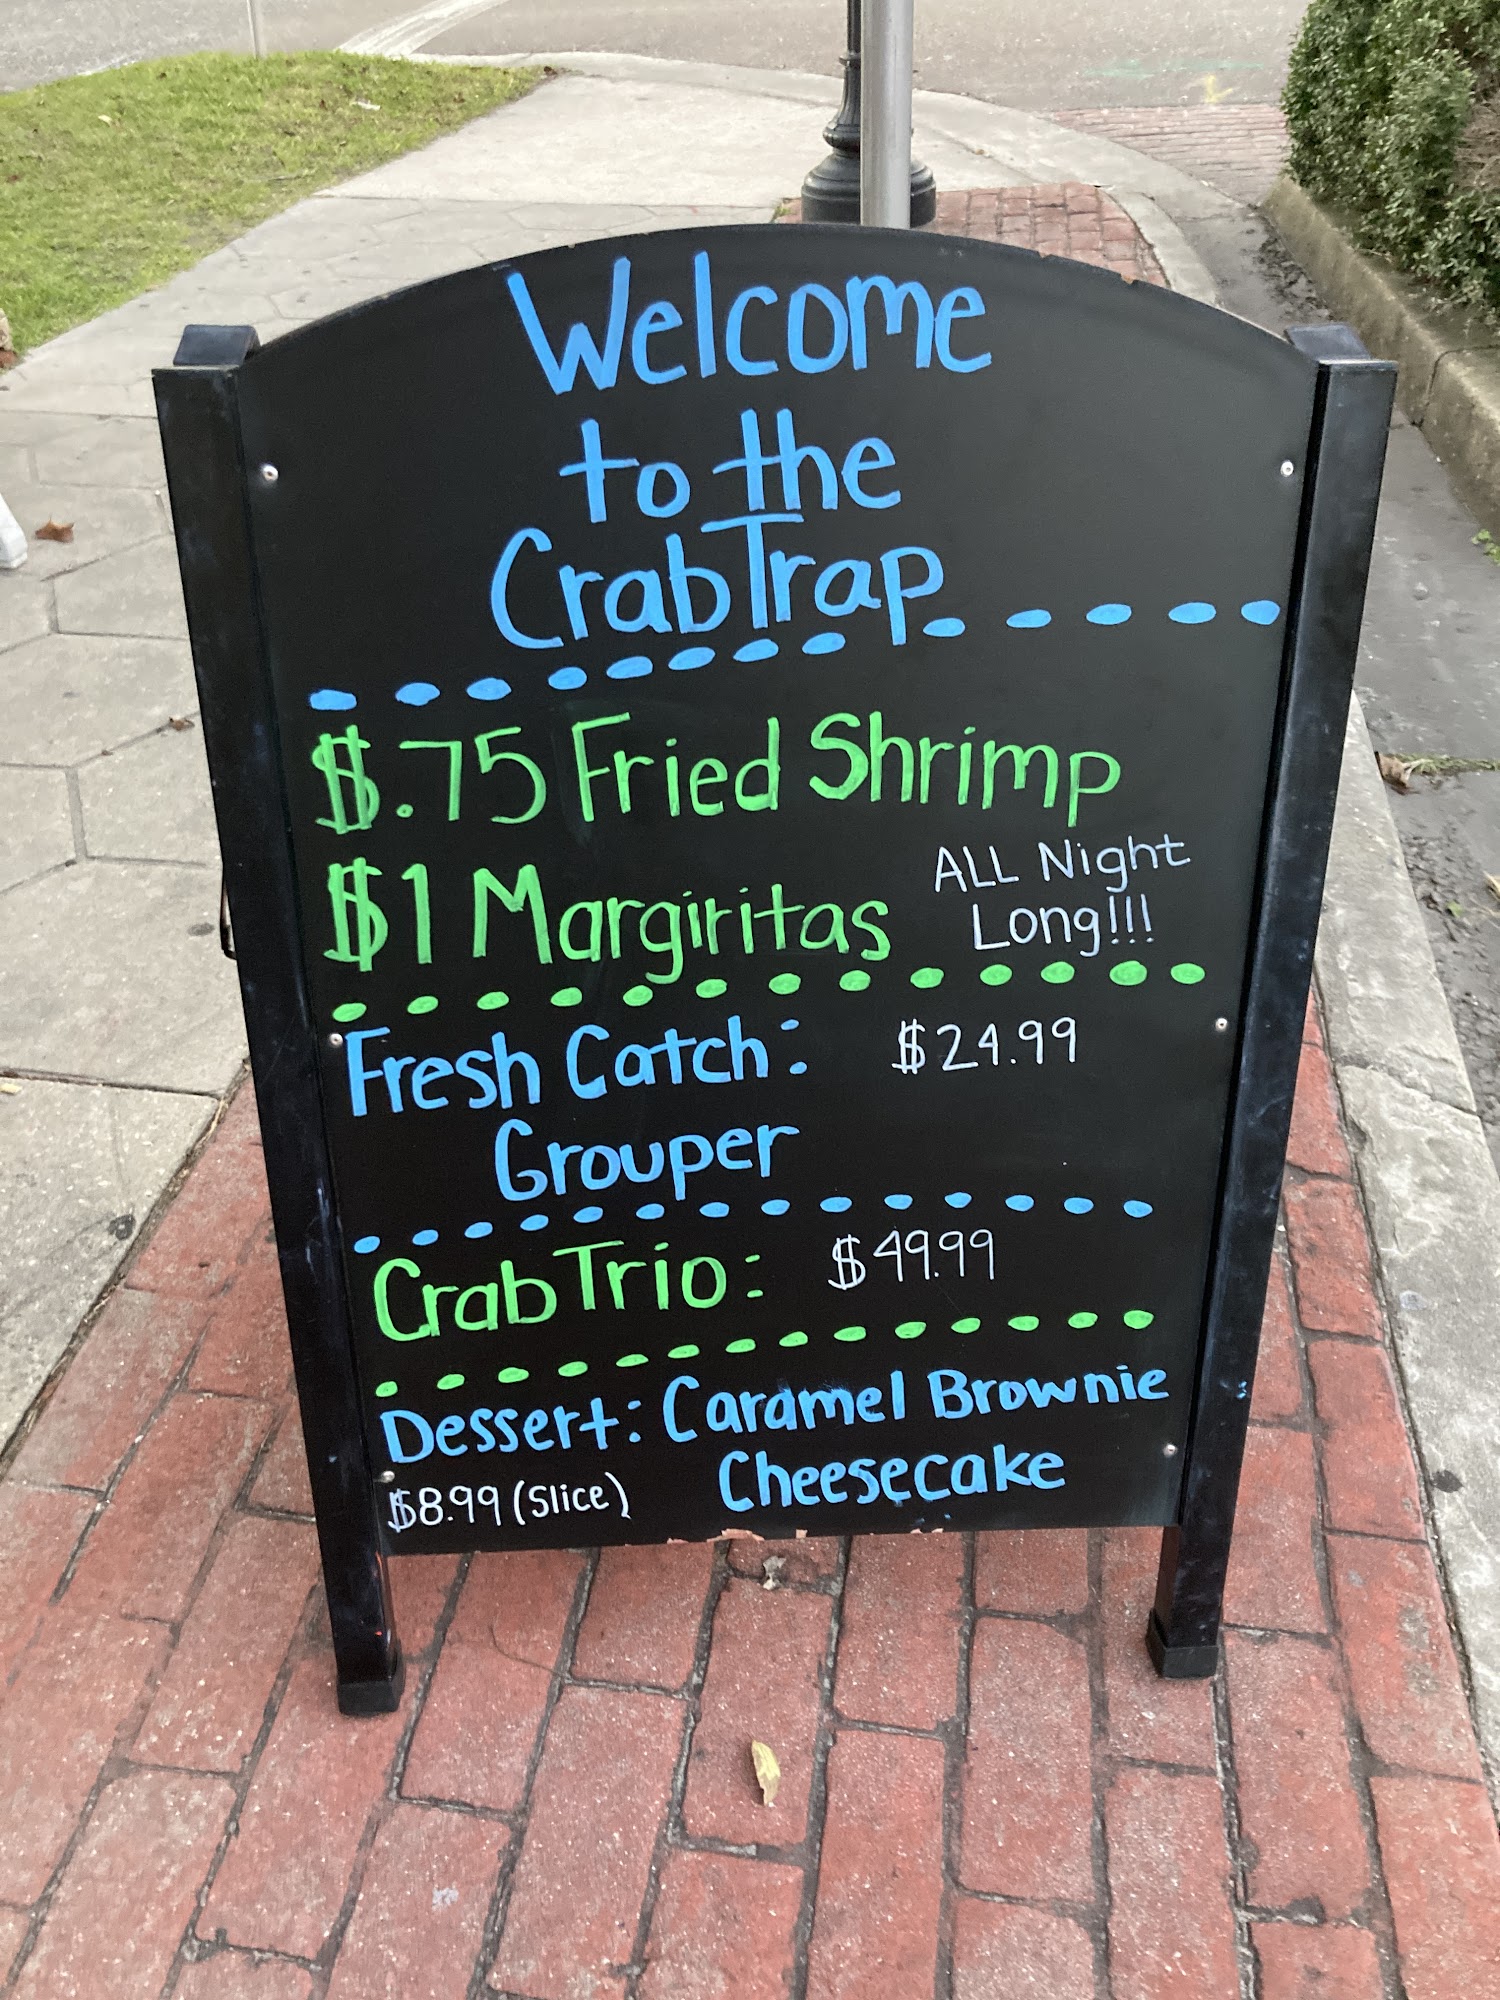 Welcome
to the
CrabTrap
$.75 Fried Shrimp
$1 Margiritas
ALL Night
Long!!!
Fresh Catch: $24.99
Grouper
Crab Trio: $49.99
Dessert: Caramel Brownie
$8.99 (Slice) Cheesecake